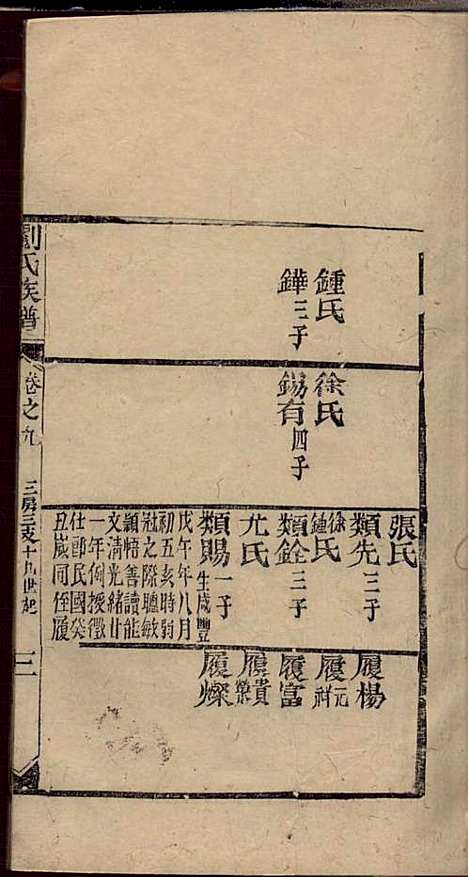 鍾氏
鏵三子
徐氏
錫有四子
張氏
類先三子
徐氏
鍾氏
類銓三子
尤氏
類賜一子
生咸豐
戊午年八月
初五亥時弱
冠之際聰敏
穎悟善讀能
文清光緒廿
一年例授徵
仕郎民國癸
丑歲同侄履
履楊
履元
祥
履富
履貴
榮
履燦
劉氏族譜
卷之九
三房三支十九世起
三